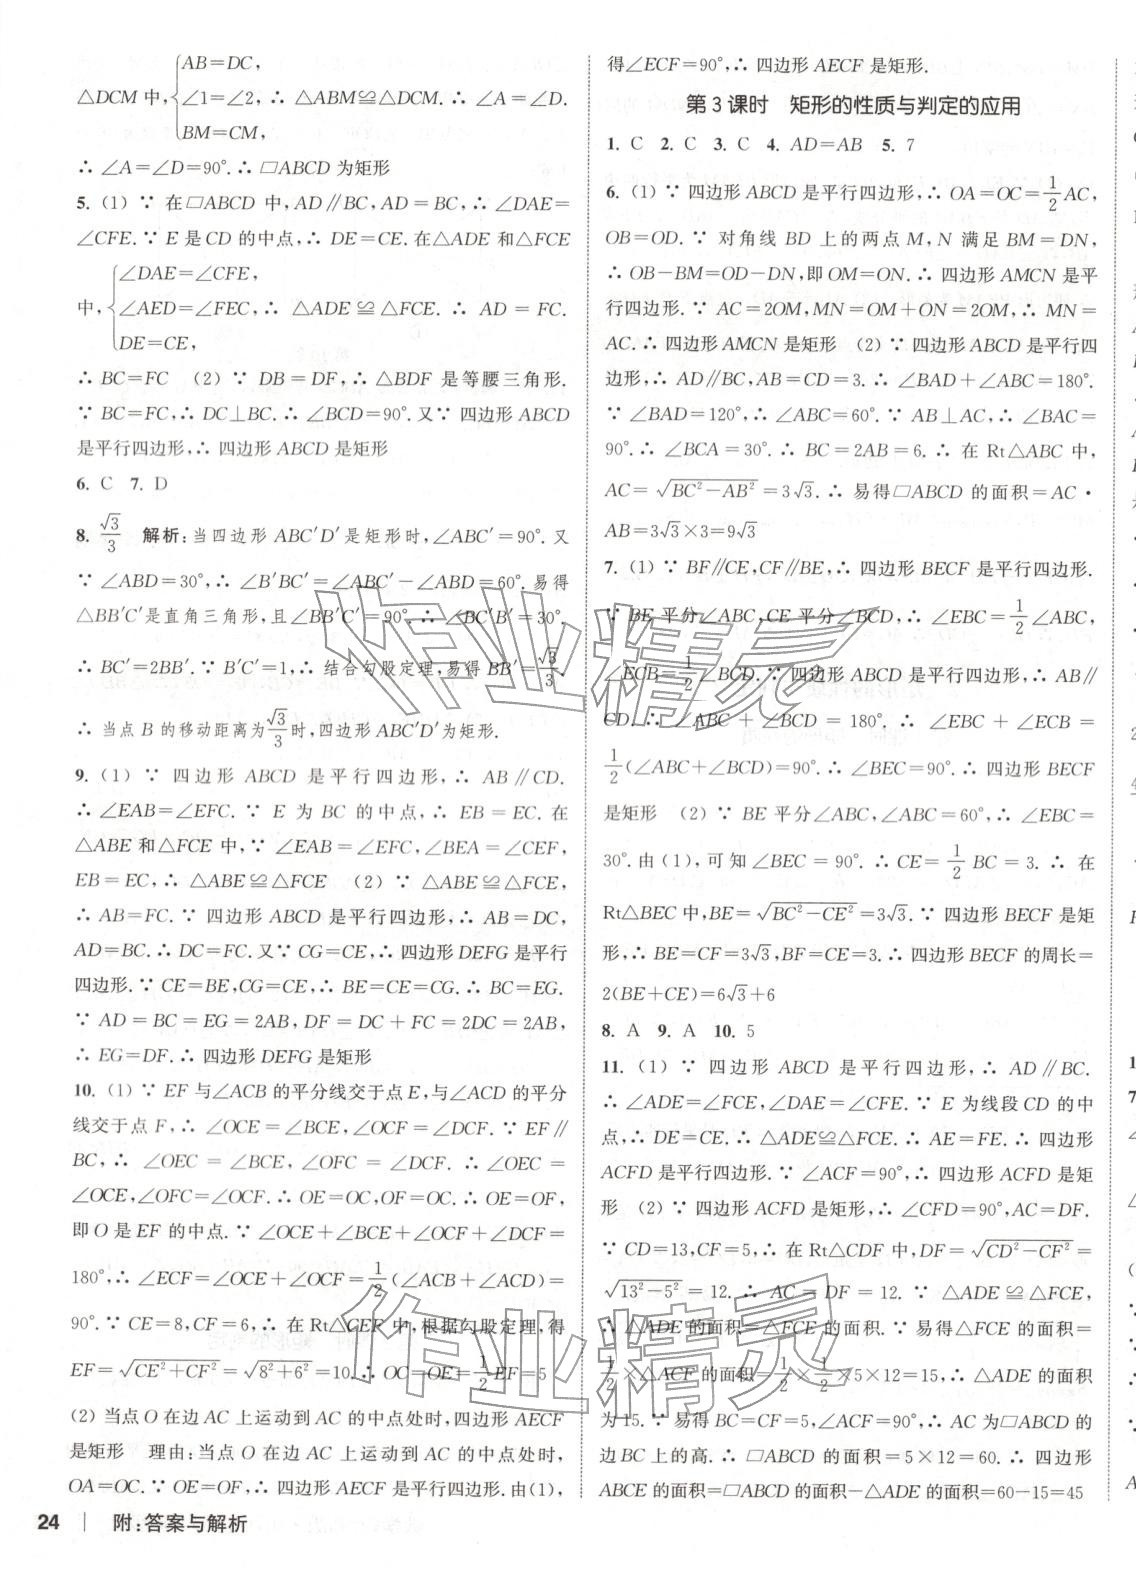 AB=DC,
△DCM 中,{∠1=∠2, ∴ △ABM≌△DCM. ∴ ∠A=∠D.
BM=CM,
∴ ∠A=∠D=90°.∴ □ABCD 为矩形
5. (1) ∵ 在□ABCD 中,AD∥BC,AD=BC,∴ ∠DAE=
∠CFE.∵ E 是 CD 的中点,∴ DE=CE.在△ADE 和△FCE
∠DAE=∠CFE,
中,{∠AED=∠FEC,∴ △ADE≌△FCE.∴ AD=FC.
DE=CE,
∴ BC=FC (2) ∵ DB=DF,∴ △BDF 是等腰三角形.
∵ BC=FC,∴ DC⊥BC.∴ ∠BCD=90°.又∵ 四边形 ABCD
是平行四边形,∴ 四边形 ABCD 是矩形
6. C 7. D
8. √3/3 解析:当四边形 ABC′D′是矩形时,∠ABC′=90°.又
∵ ∠ABD=30°,∴ ∠B′BC′=∠ABC′-∠ABD=60°.易得
△BB′C′是直角三角形,且∠BB′C′=90°,∴ ∠BC′B′=30°.
∴ BC′=2BB′.∵ B′C′=1,∴ 结合勾股定理,易得 BB′=√3/3.
∴ 当点 B 的移动距离为√3/3时,四边形 ABC′D′为矩形.
9. (1) ∵ 四边形 ABCD 是平行四边形,∴ AB∥CD.
∴ ∠EAB=∠EFC.∵ E 为 BC 的中点,∴ EB=EC.在
△ABE 和△FCE 中,∵ ∠EAB=∠EFC,∠BEA=∠CEF,
EB=EC,∴ △ABE≌△FCE (2) ∵ △ABE≌△FCE,
∴ AB=FC.∵ 四边形 ABCD 是平行四边形,∴ AB=DC,
AD=BC.∴ DC=FC.又∵ CG=CE,∴ 四边形 DEFG 是平行
四边形.∵ CE=BE,CG=CE,∴ BE=CE=CG.∴ BC=EG.
∵ AD=BC=EG=2AB,DF=DC+FC=2DC=2AB,
∴ EG=DF.∴ 四边形 DEFG 是矩形
10. (1) ∵ EF 与∠ACB 的平分线交于点 E,与∠ACD 的平分
线交于点 F,∴ ∠OCE=∠BCE,∠OCF=∠DCF.∵ EF∥
BC,∴ ∠OEC=∠BCE,∠OFC=∠DCF.∴ ∠OEC=
∠OCE,∠OFC=∠OCF.∴ OE=OC,OF=OC.∴ OE=OF,
即 O 是 EF 的中点.∵ ∠OCE+∠BCE+∠OCF+∠DCF=
180°,∴ ∠ECF=∠OCE+∠OCF=1/2(∠ACB+∠ACD)=
90°.∵ CE=8,CF=6,∴ 在 Rt△CEF 中,根据勾股定理,得
EF=√(CE²+CF²)=√(8²+6²)=10.∴ OC=OE=1/2EF=5
(2) 当点 O 在边 AC 上运动到 AC 的中点处时,四边形 AECF
是矩形 理由:当点 O 在边 AC 上运动到 AC 的中点处时,
OA=OC.∵ OE=OF,∴ 四边形 AECF 是平行四边形.由(1),
24 附:答案与解析
得∠ECF=90°,∴ 四边形 AECF 是矩形.
第 3 课时 矩形的性质与判定的应用
1. C 2. C 3. C 4. AD=AB 5. 7
6. (1) ∵ 四边形 ABCD 是平行四边形,∴ OA=OC=1/2AC,
OB=OD.∵ 对角线 BD 上的两点 M,N 满足 BM=DN,
∴ OB-BM=OD-DN,即 OM=ON.∴ 四边形 AMCN 是平
行四边形.∵ AC=2OM,MN=OM+ON=2OM,∴ MN=
AC.∴ 四边形 AMCN 是矩形 (2) ∵ 四边形 ABCD 是平行四
边形,∴ AD∥BC,AB=CD=3.∴ ∠BAD+∠ABC=180°.
∵ ∠BAD=120°,∴ ∠ABC=60°.∵ AB⊥AC,∴ ∠BAC=
90°.∴ ∠BCA=30°.∴ BC=2AB=6.∴ 在 Rt△ABC 中,
AC=√(BC²-AB²)=3√3.∴ 易得□ABCD 的面积=AC·
AB=3√3×3=9√3
7. (1) ∵ BF∥CE,CF∥BE,∴ 四边形 BECF 是平行四边形.
∵ BE 平分∠ABC,CE 平分∠BCD,∴ ∠EBC=1/2∠ABC,
∠ECB=1/2∠BCD.∵ 四边形 ABCD 是平行四边形,∴ AB∥
CD.∴ ∠ABC+∠BCD=180°.∴ ∠EBC+∠ECB=
1/2(∠ABC+∠BCD)=90°.∴ ∠BEC=90°.∴ 四边形 BECF
是矩形 (2) ∵ BE 平分∠ABC,∠ABC=60°,∴ ∠EBC=
30°.由(1),可知∠BEC=90°.∴ CE=1/2BC=3.∴ 在
Rt△BEC 中,BE=√(BC²-CE²)=3√3.∵ 四边形 BECF 是矩
形,∴ BE=CF=3√3,BF=CE=3.∴ 四边形 BECF 的周长=
2(BE+CE)=6√3+6
8. A 9. A 10. 5
11. (1) ∵ 四边形 ABCD 是平行四边形,∴ AD∥BC.
∴ ∠ADE=∠FCE,∠DAE=∠CFE.∵ E 为线段 CD 的中
点,∴ DE=CE.∴ △ADE≌△FCE.∴ AE=FE.∴ 四边形
ACFD 是平行四边形.∵ ∠ACF=90°,∴ 四边形 ACFD 是矩
形 (2) ∵ 四边形 ACFD 是矩形,∴ ∠CFD=90°,AC=DF.
∵ CD=13,CF=5,∴ 在 Rt△CDF 中,DF=√(CD²-CF²)=
√(13²-5²)=12.∴ AC=DF=12.∵ △ADE≌△FCE,
∴ △ADE 的面积=△FCE 的面积.∵ 易得△FCE 的面积=
1/2×△ACF 的面积=1/2×1/2×5×12=15,∴ △ADE 的面积
为 15.∵ 易得 BC=CF=5,∠ACF=90°,∴ AC 为□ABCD 的
边 BC 上的高.∴ □ABCD 的面积=5×12=60.∴ 四边形
ABCE 的面积=□ABCD 的面积-△ADE 的面积=60-15=45
作业精灵
作业精灵